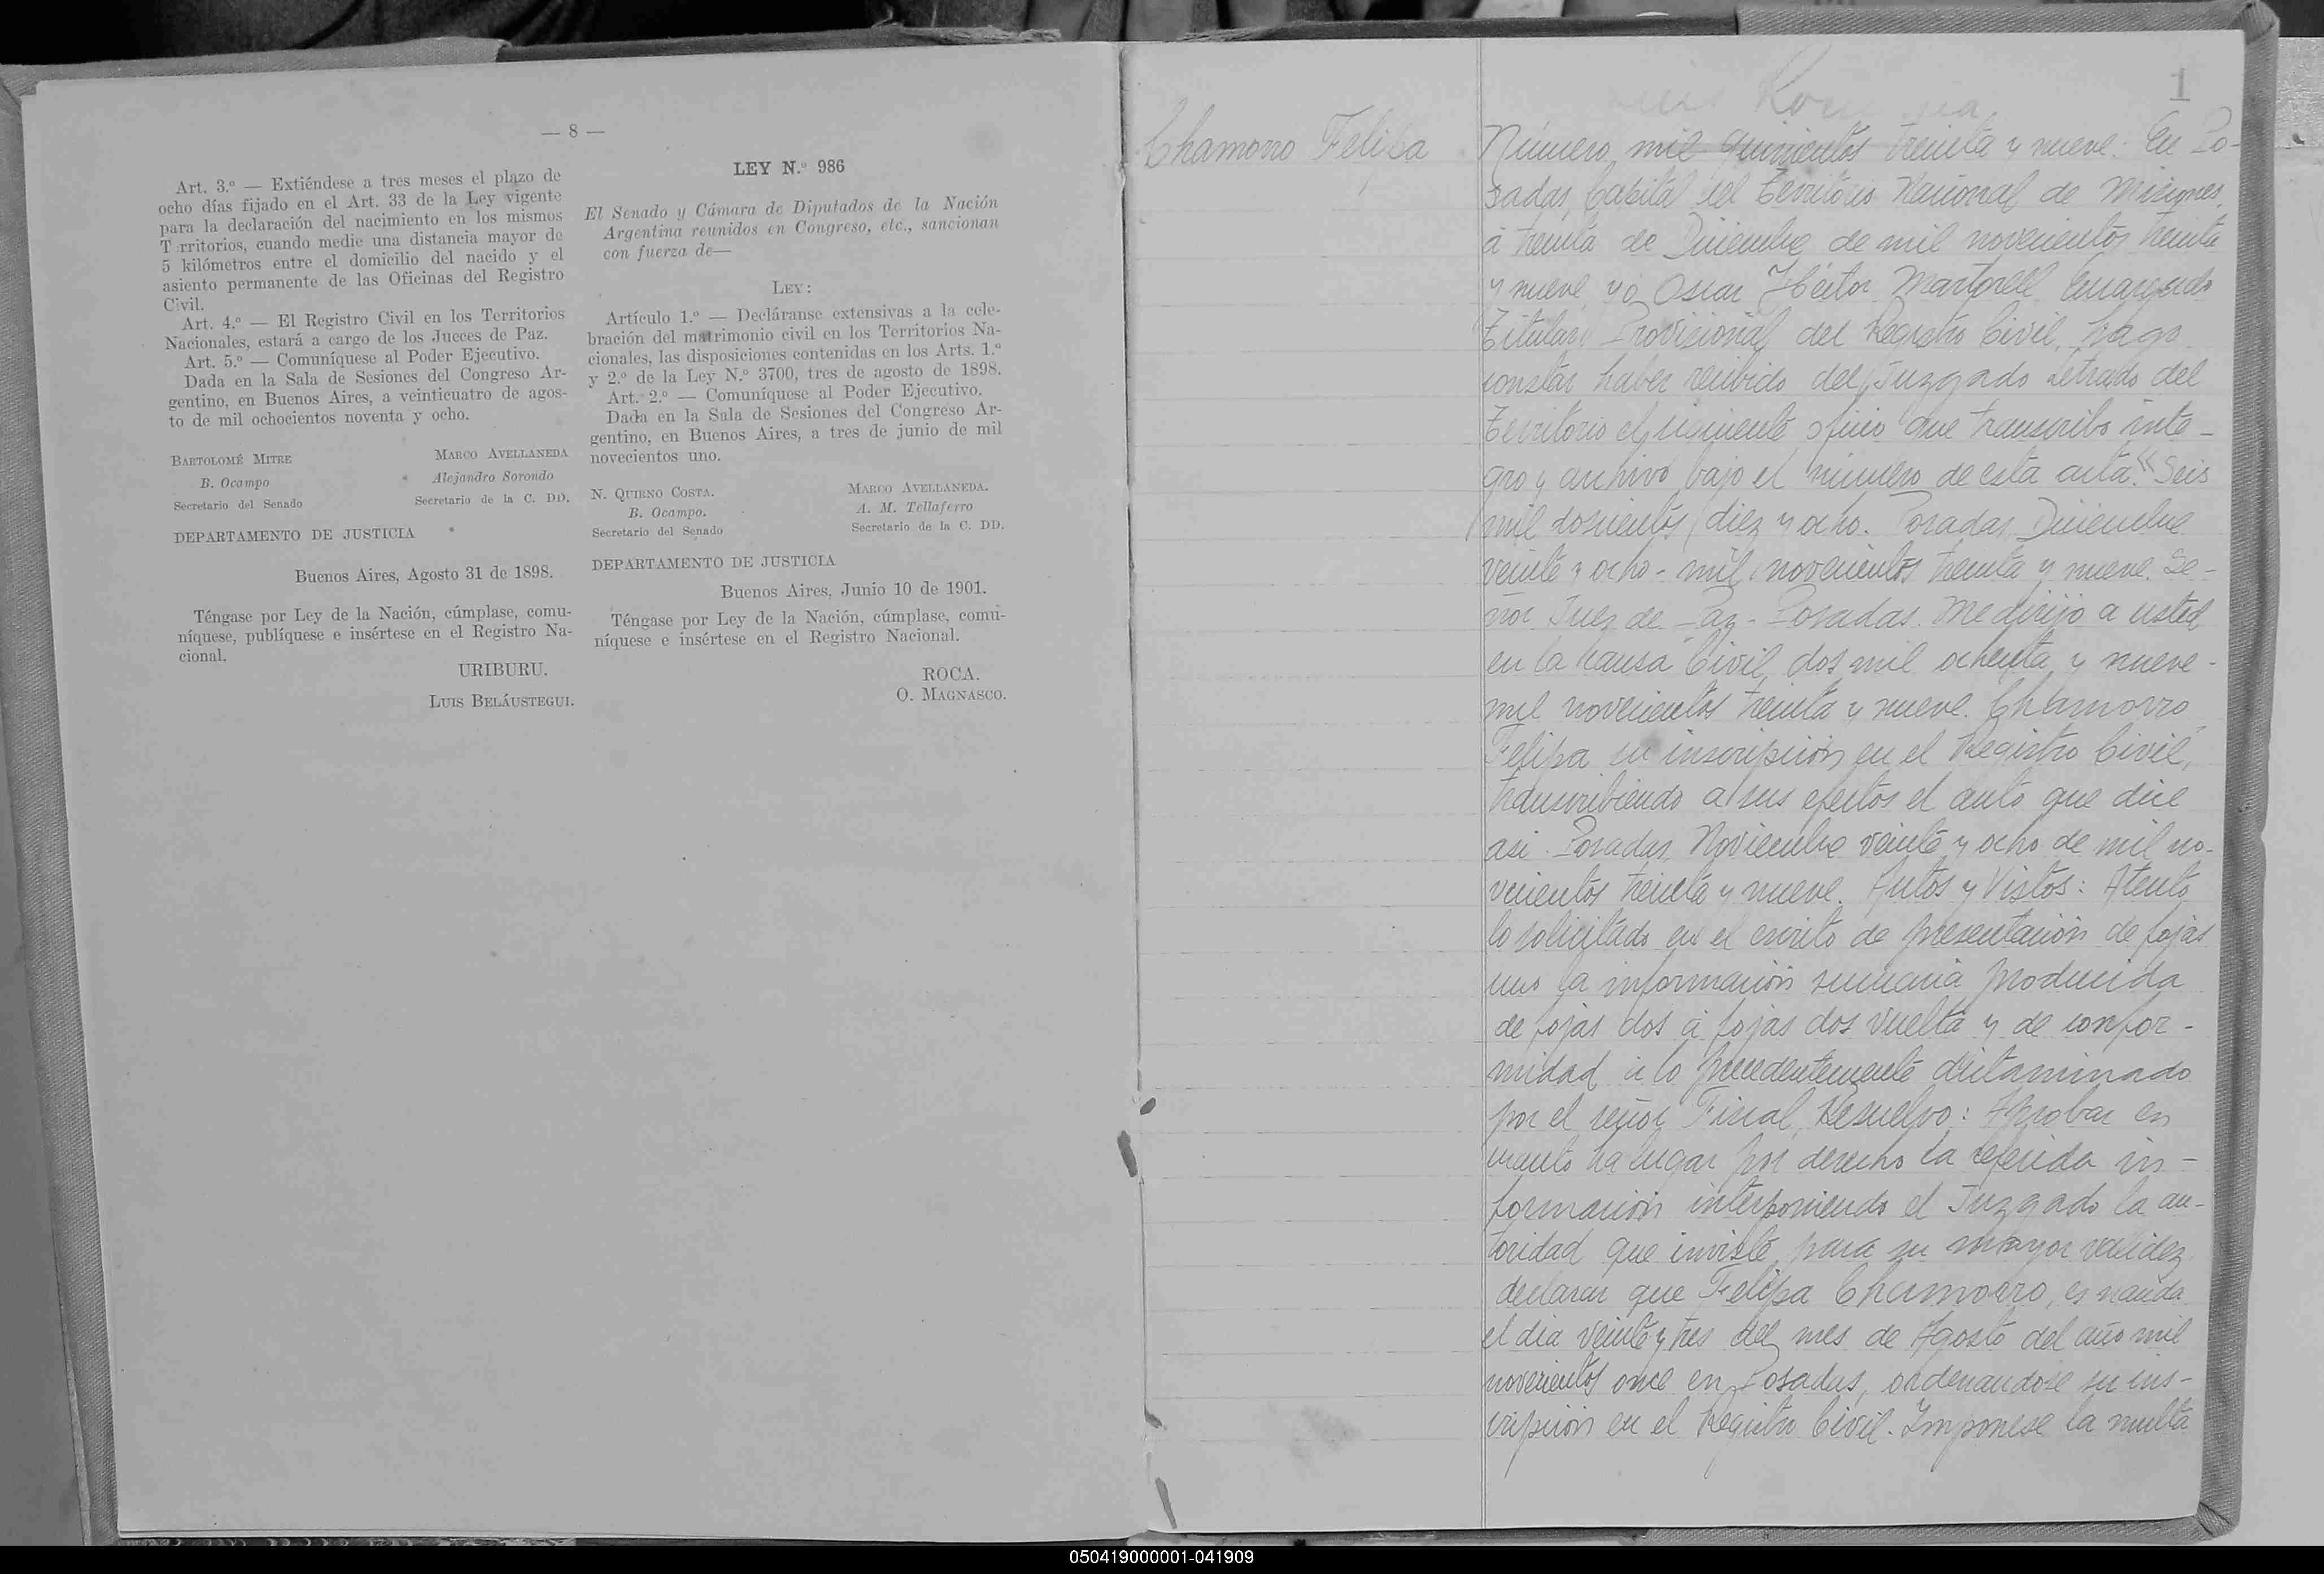 — 8 —
Art. 3.º — Extiéndese a tres meses el plazo de
ocho días fijado en el Art. 33 de la Ley vigente
para la declaración del nacimiento en los mismos
T rritorios, cuando medie una distancia mayor de
5 kilómetros entre el domicilio del nacido y el
asiento permanente de las Oficinas del Registro
Civil.
Art. 4.º — El Registro Civil en los Territorios
Nacionales, estará a cargo de los Jueces de Paz.
Art. 5.º — Comuníquese al Poder Ejecutivo.
Dada en la Sala de Sesiones del Congreso Ar-
gentino, en Buenos Aires, a veinticuatro de agos-
to de mil ochocientos noventa y ocho.
BARTOLOMÉ MITRE MARCO AVELLANEDA
B. Ocampo Alejandro Sorondo
Secretario del Senado Secretario de la C. DD.
DEPARTAMENTO DE JUSTICIA
Buenos Aires, Agosto 31 de 1898.
Téngase por Ley de la Nación, cúmplase, comu-
níquese, publíquese e insértese en el Registro Na-
cional.
URIBURU.
LUIS BELÁUSTEGUI.
LEY N.º 986
El Senado y Cámara de Diputados de la Nación
Argentina reunidos en Congreso, etc., sancionan
con fuerza de—
LEY:
Artículo 1.º — Decláranse extensivas a la cele-
bración del matrimonio civil en los Territorios Na-
cionales, las disposiciones contenidas en los Arts. 1.º
y 2.º de la Ley N.º 3700, tres de agosto de 1898.
Art. 2.º — Comuníquese al Poder Ejecutivo.
Dada en la Sala de Sesiones del Congreso Ar-
gentino, en Buenos Aires, a tres de junio de mil
novecientos uno.
N. QUIRNO COSTA. MARCO AVELLANEDA.
B. Ocampo. A. M. Tellaferro
Secretario del Senado Secretario de la C. DD.
DEPARTAMENTO DE JUSTICIA
Buenos Aires, Junio 10 de 1901.
Téngase por Ley de la Nación, cúmplase, comu-
níquese e insértese en el Registro Nacional.
ROCA.
O. MAGNASCO.
1
Chamorro Felipa
Número mil quinientos treinta y nueve. En Po-
sadas, Capital del Territorio Nacional de Misiones,
á treinta de Diciembre de mil novecientos treinta
y nueve, yo Oscar Héctor Martorell Encargado
Titular Provisional del Registro Civil, hago
constar haber recibido del Juzgado Letrado del
Territorio el siguiente oficio que transcribo inte-
gro y archivo bajo el número de esta acta. "Seis
mil doscientos diez y ocho. Posadas, Diciembre
veinte y ocho - mil novecientos treinta y nueve. Se-
ñor Juez de Paz - Posadas. Me dirijo a usted
en la causa Civil, dos mil ochenta y nueve -
mil novecientos treinta y nueve. Chamorro
Felipa su inscripción en el Registro Civil,
transcribiendo a sus efectos el auto que dice
asi. Posadas, Noviembre veinte y ocho de mil no-
vecientos treinta y nueve. Autos y Vistos: Atento
lo solicitado en el escrito de presentación de fojas
uno la información sumaria producida
de fojas dos á fojas dos vuelta y de confor-
midad á lo precedentemente dictaminado
por el señor Fiscal, Resuelvo: Aprobar en
cuanto ha lugar por derecho la referida in-
formación interponiendo el Juzgado la au-
toridad que inviste, para su mayor validez
declarar que Felipa Chamorro, es nacida
el dia veinte y tres del mes de Agosto del año mil
novecientos once en Posadas, ordenandose su ins-
cripción en el Registro Civil. Imponese la multa
050419000001-041909